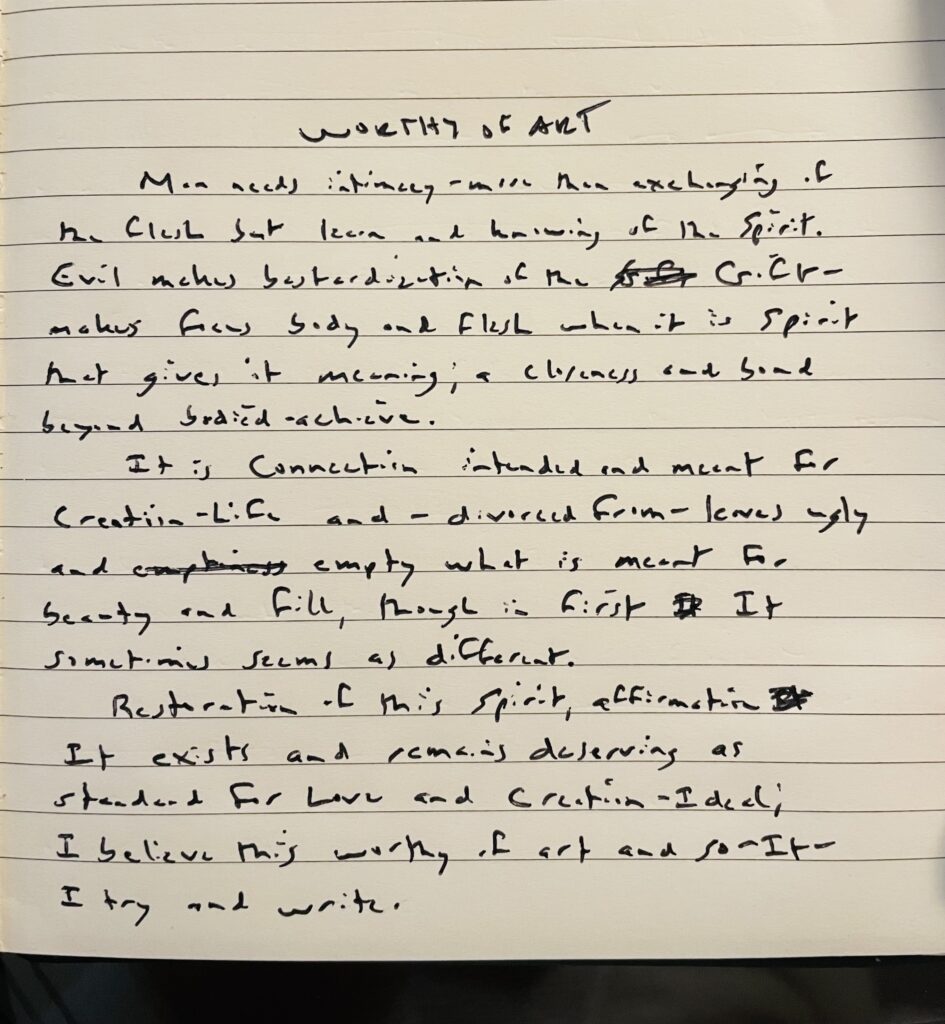 WORTHY OF ART
Man needs intimacy - more than exchanging of
the flesh but learn and knowing of the Spirit.
Evil makes bastardization of the Gift -
makes focus body and flesh when it is Spirit
that gives it meaning; a closeness and bond
beyond bodied-achieve.
It is Connection intended and meant for
Creation-Life and - divorced from - leaves ugly
and emptiness empty what is meant for
beauty and fill, though in first It
sometimes seems as different.
Restoration of this Spirit, affirmation
It exists and remains deserving as
standard for Love and Creation-Ideal;
I believe this worthy of art and so - It -
I try and write.